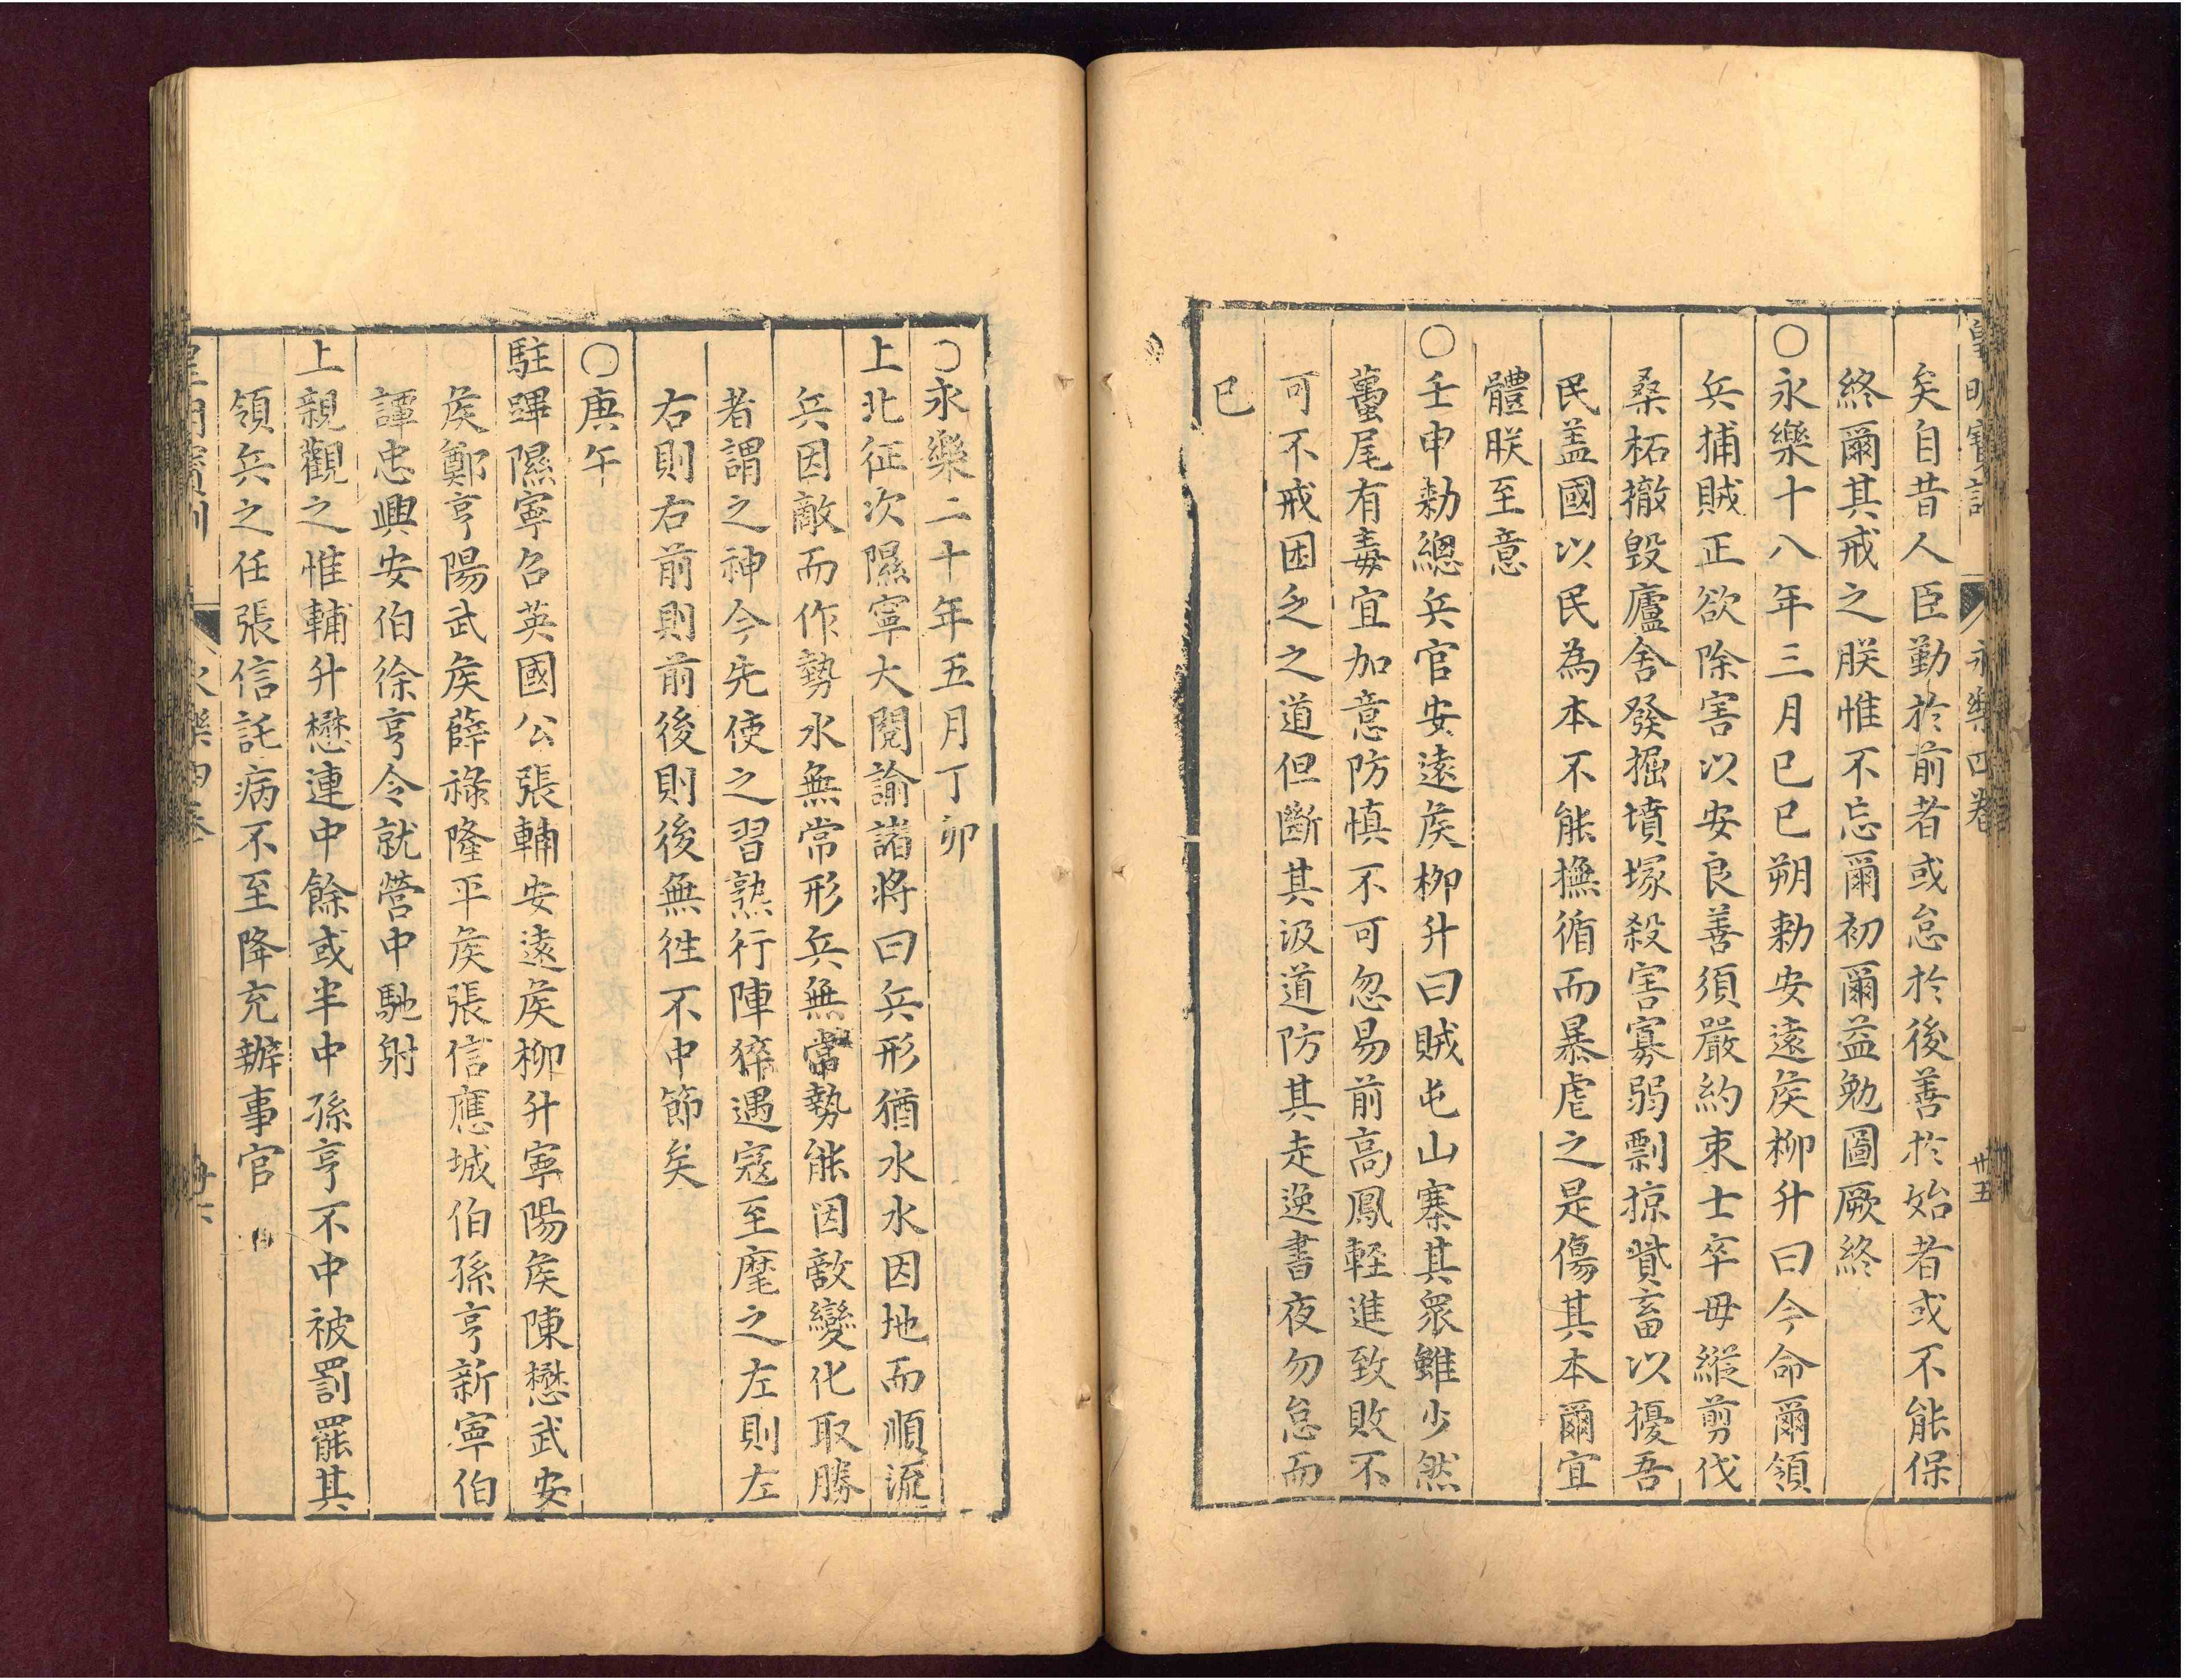 皇明寶訓 永樂四卷 卅五
矣自昔人臣勤於前者或怠於後善於始者或不能保
終爾其戒之朕惟不忘爾初爾益勉圖厥終
○永樂十八年三月巳巳朔勑安遠侯柳升曰今命爾領
兵捕賊正欲除害以安良善須嚴約束士卒毋縱剪伐
桑柘撤毀廬舍發掘墳塚殺害寡弱剽掠貲畜以擾吾
民盖國以民為本不能撫循而暴虐之是傷其本爾宜
體朕至意
○壬申勑總兵官安遠侯柳升曰賊屯山寨其眾雖少然
蠆尾有毒宜加意防慎不可忽易前高鳳輕進致敗不
可不戒困之之道但斷其汲道防其走逸書夜勿怠而
巳
○永樂二十年五月丁卯
上北征次隰寧大閱諭諸將曰兵形猶水水因地而順流
兵因敵而作勢水無常形兵無常勢能因敵變化取勝
者謂之神今先使之習熟行陣猝遇寇至麾之左則左
右則右前則前後則後無徃不中節矣
○庚午
駐蹕隰寧召英國公張輔安遠侯柳升寧陽侯陳懋武安
侯鄭亨陽武侯薛祿隆平侯張信應城伯孫亨新寧伯
譚忠興安伯徐亨令就營中馳射
上親觀之惟輔升懋連中餘或半中孫亨不中被罰罷其
領兵之任張信託病不至降充辦事官